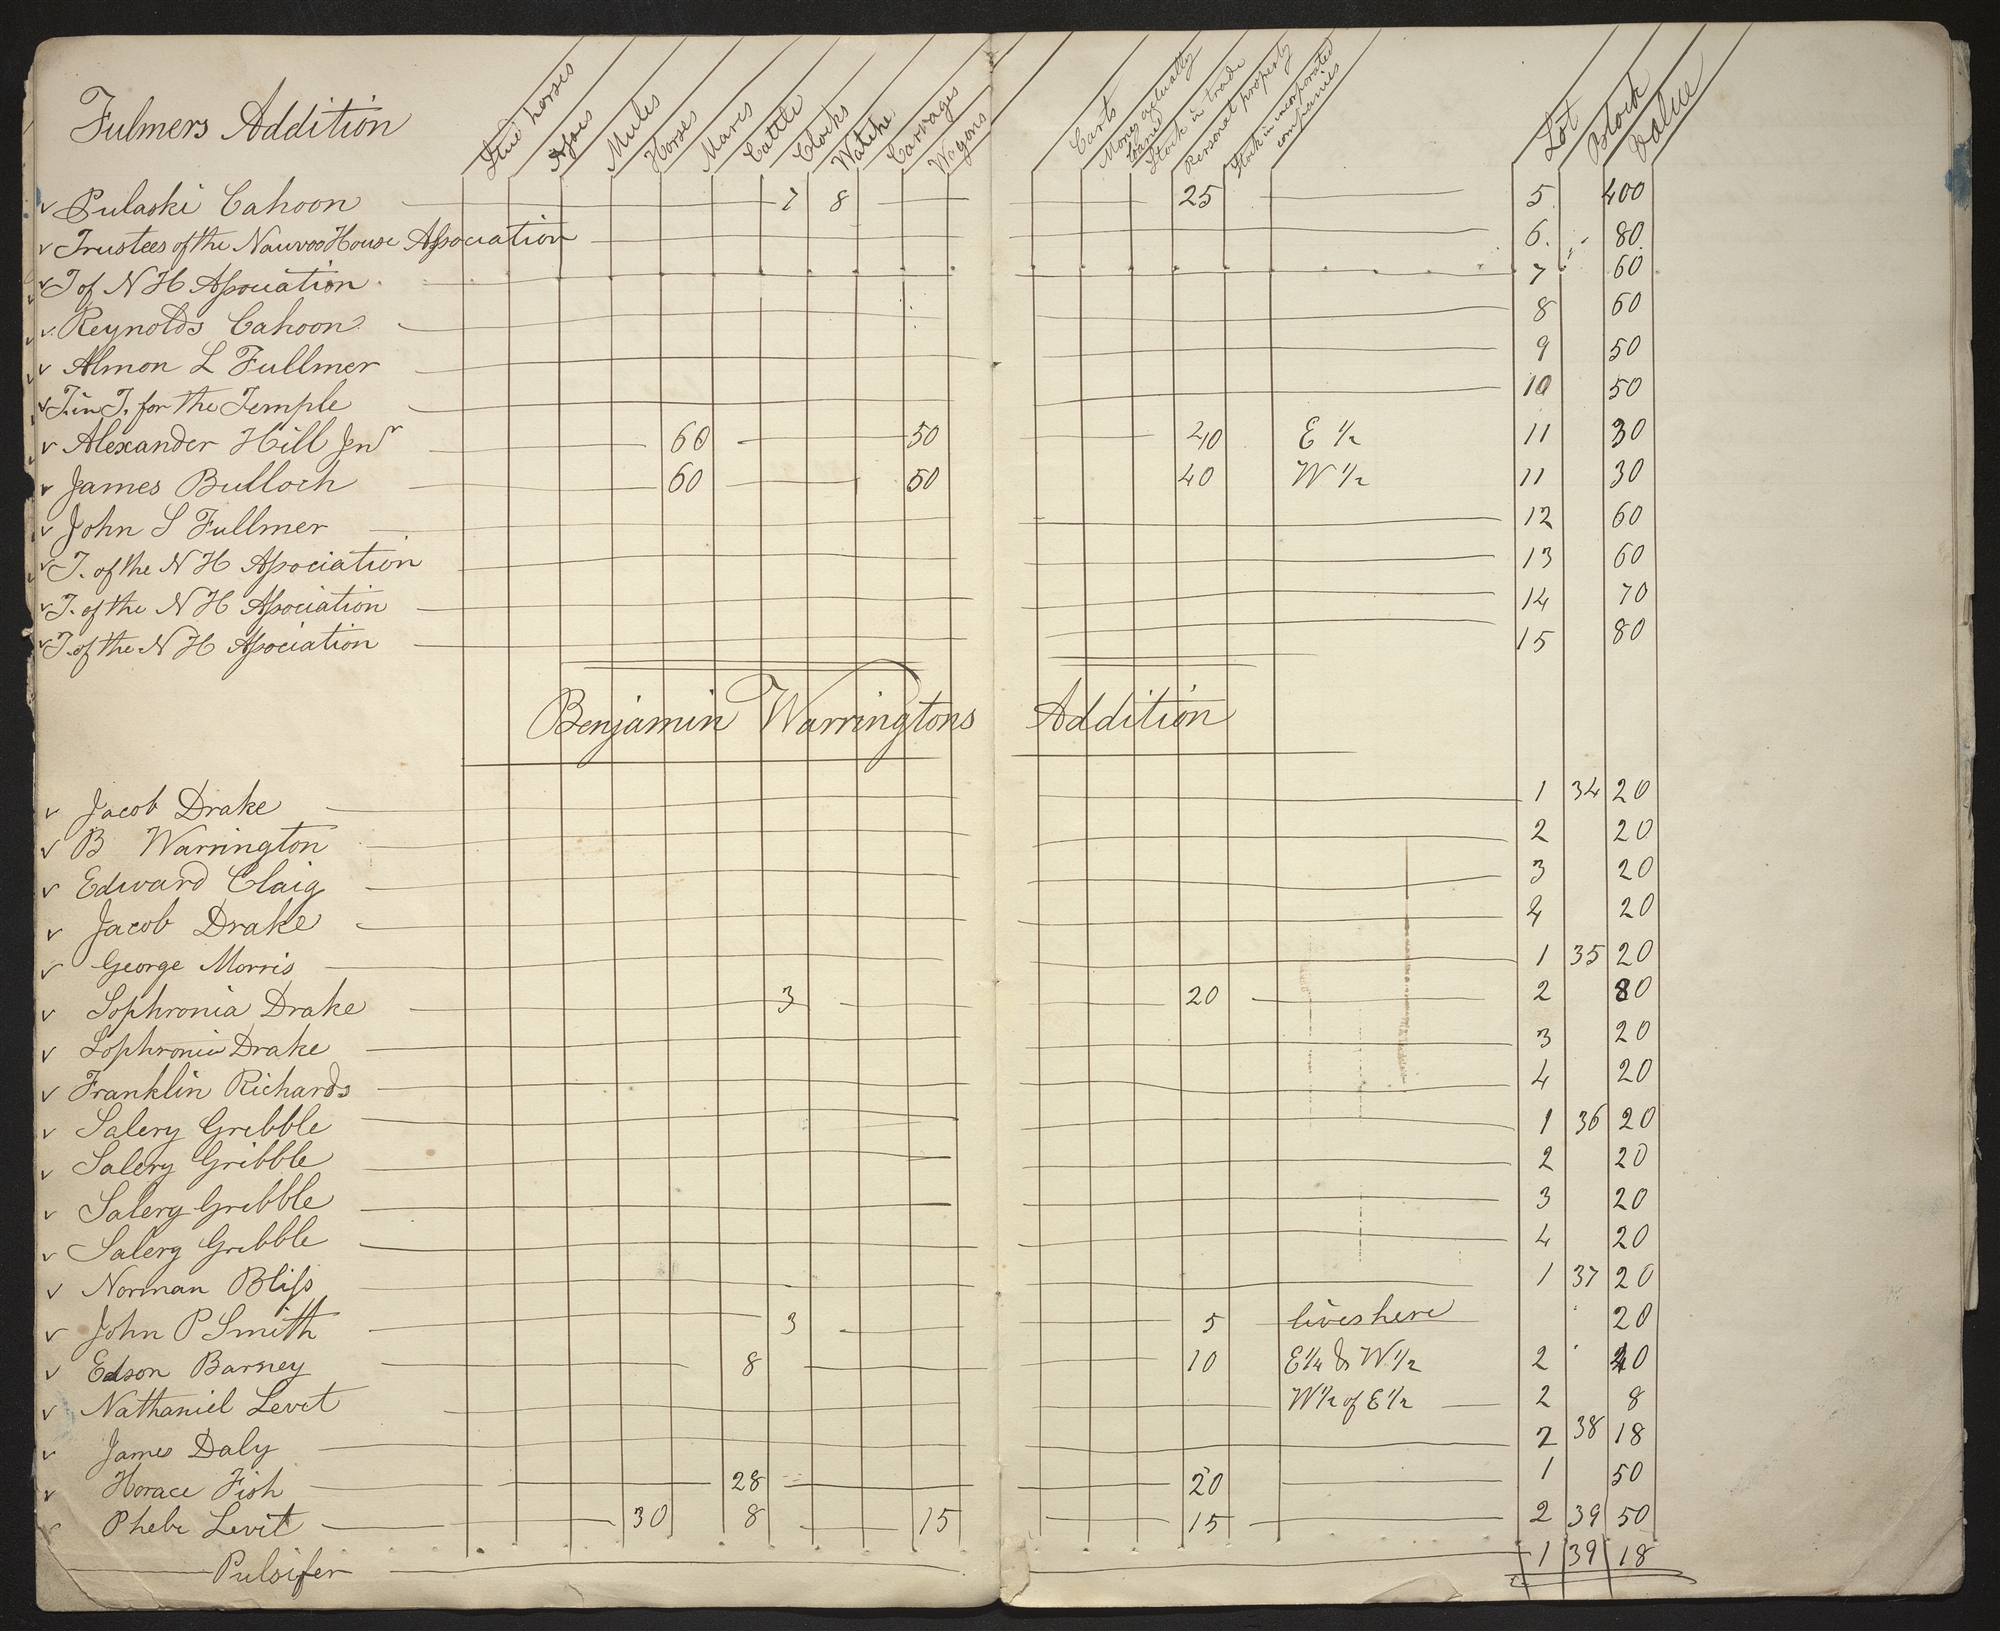 Fulmers Addition
Stud horses Asses Mules Horses Mares Cattle Clocks Watche Carrages Wagons Carts Money actually loaned Stock in trade Personal property Stock in incorporated companies Lot Block Value
v Pulaski Cahoon 7 8 25 5 400
v Trustees of the Nauvoo House Association 6 80
v T of N H Association 7 60
v Reynolds Cahoon 8 60
v Almon L Fullmer 9 50
v T. in T. for the Temple 10 50
v Alexander Hill Jnr 60 50 40 E 1/2 11 30
v James Bulloch 60 50 40 W 1/2 11 30
v John S Fullmer 12 60
v T. of the N H Association 13 60
v T. of the N H Asociation 14 70
v T. of the N H Asociation 15 80
Benjamin Warringtons Addition
v Jacob Drake 1 34 20
v B Warrington 2 20
v Edward Claig 3 20
v Jacob Drake 4 20
v George Morris 1 35 20
v Sophronia Drake 3 20 2 80
v Sophronia Drake 3 20
v Franklin Richards 4 20
v Salery Gribble 1 36 20
v Salery Gribble 2 20
v Salery Gribble 3 20
v Salery Gribble 4 20
v Norman Bliss 1 37 20
v John P Smith 3 5 lives here 20
v Edson Barney 8 10 E 1/4 & W 1/2 2 40
v Nathaniel Levit W 1/2 of E 1/2 2 8
v James Daly 2 38 18
v Horace Fish 28 20 1 50
v Phebe Levit 30 8 15 15 2 39 50
Pulsifer 1 39 18